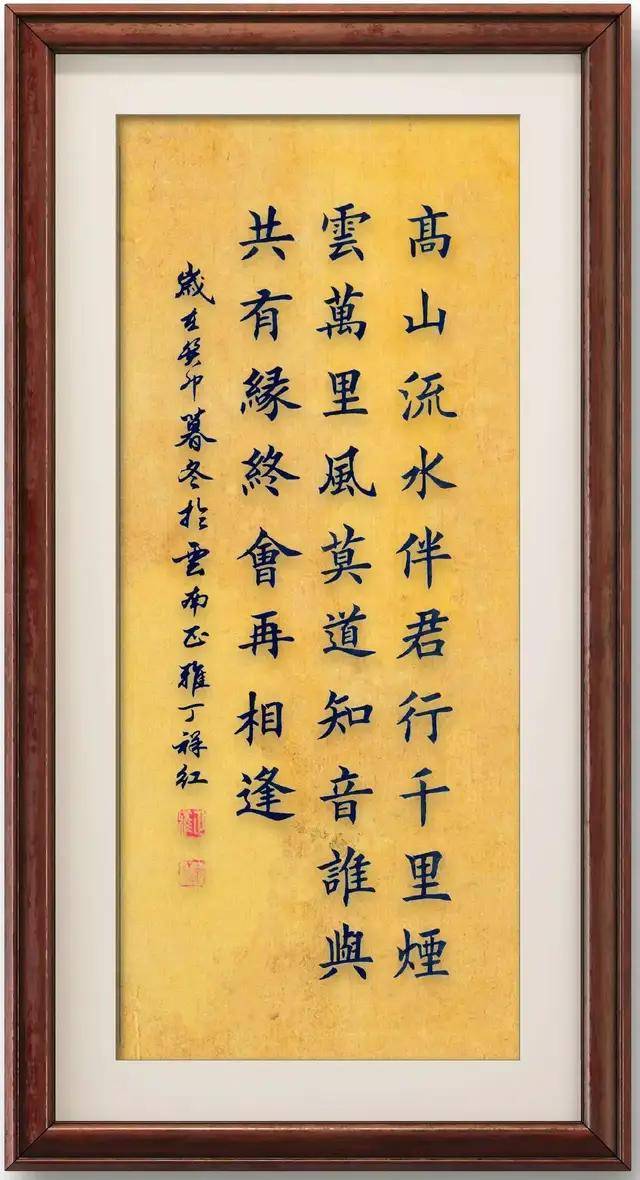 髙山流水伴君行千里煙
雲萬里風莫道知音誰與
共有緣終會再相逢
歲在癸卯暮冬於雲南正雅丁祥紅